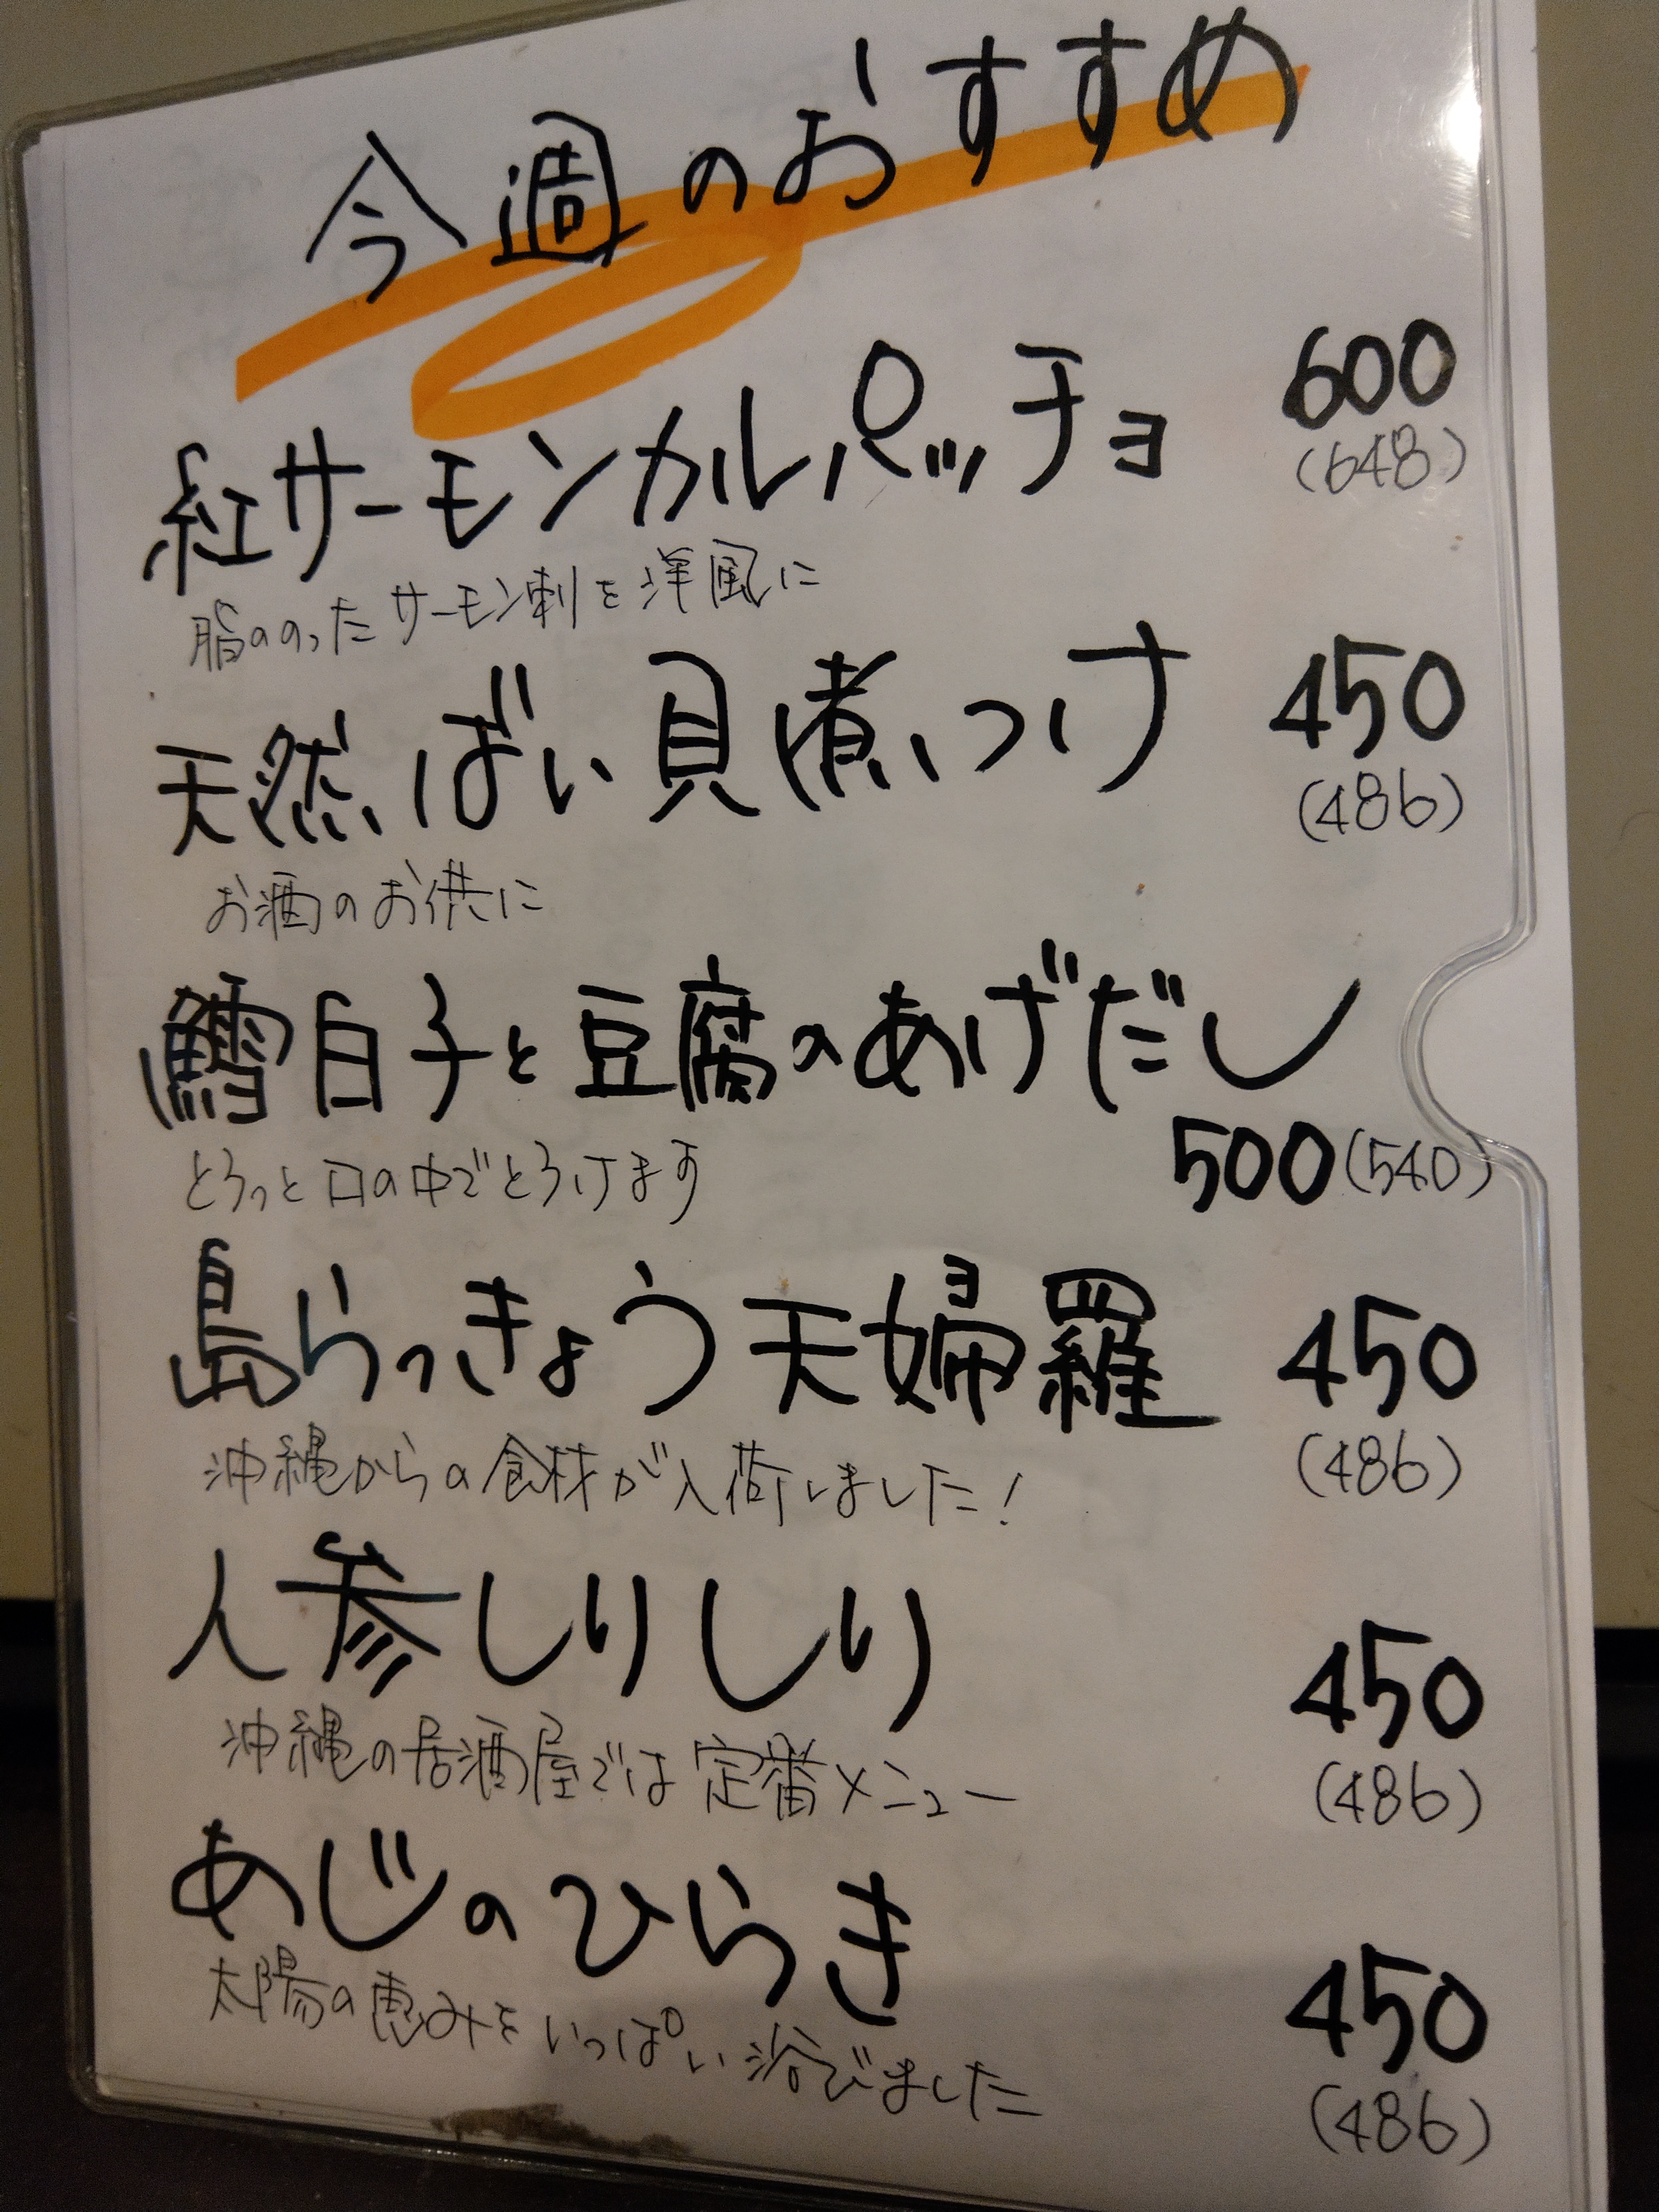 今週のおすすめ
紅サーモンカルパッチョ 600
(648)
脂ののったサーモン刺を洋風に
天然ばい貝煮つけ 450
(486)
お酒のお供に
鱈白子と豆腐のあげだし
500(540)
とろっと口の中でとろけます
島らっきょう天婦羅 450
(486)
沖縄からの食材が入荷しました!
人参しりしり 450
(486)
沖縄の居酒屋では定番メニュー
あじのひらき 450
(486)
太陽の恵みをいっぱい浴びました